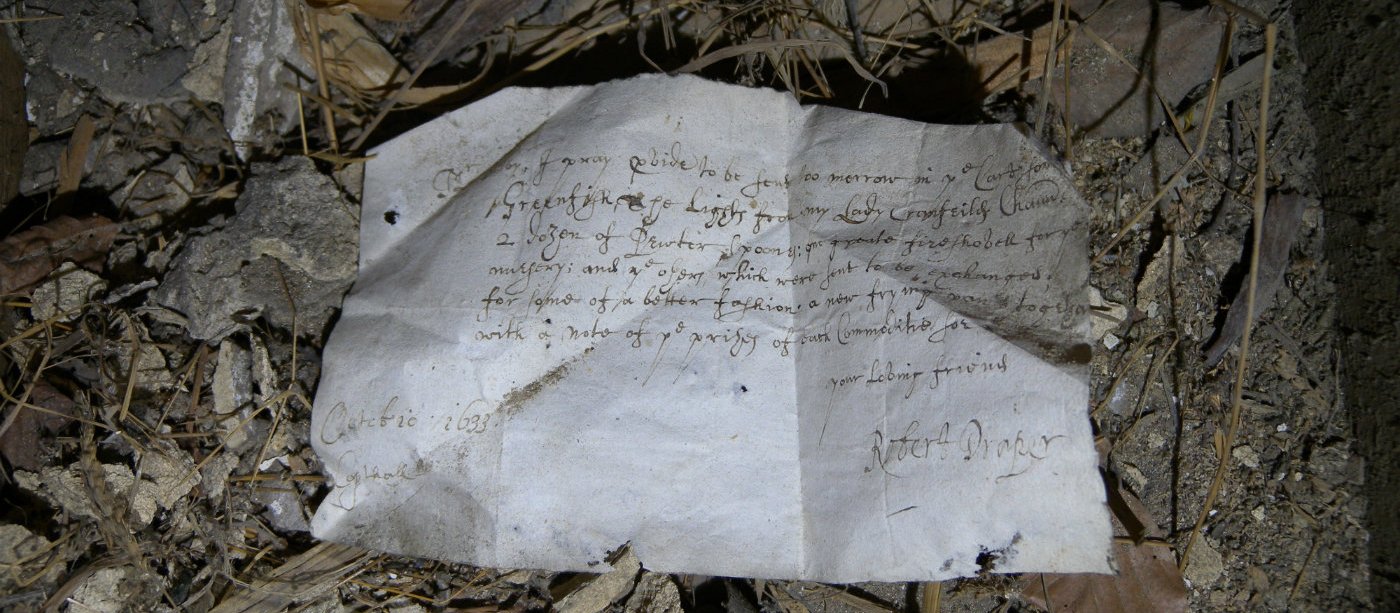 I pray pvide to be sent too morrow in ye Cart some
Greenfish, ye Lights from my Lady Cranfeilds Cham
2 dozen of Pewter spoons: one greate fireshovell for ye
nursery: and ye others which were sent to be exchanged
for some of a better fashion, a new frying pann together
with a note of ye prizes of each Commoditie for
your loving friend
Robert Draper
Octobr 10: 1633
Copthall